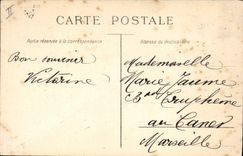 CARTE POSTALE
Partie réservée à la correspondance
Adresse du destinataire
Bon souvenir
Victorine
Mademoiselle
Marie Jaume
Bd
au Canet
Marseille